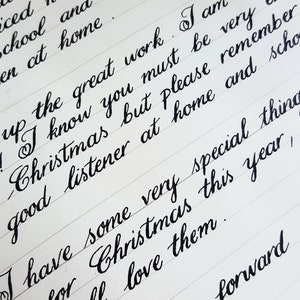 iced
school and
en at home.
up the great work. I am
! I know you must be very
Christmas but please remember
good listener at home and scho
I have some very special thing
for Christmas this year,
love them.
forward